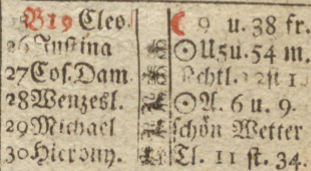 B19 Cleo. ☾ 9 u. 38 fr.
26 Justina ☉ U5u. 54 m.
27 Cos. Dam. Nchtl. 12st 1
28 Wenzesl. ☉ A. 6 u. 9.
29 Michael schön Wetter
30 Hierony. Tl. 11 st. 34.